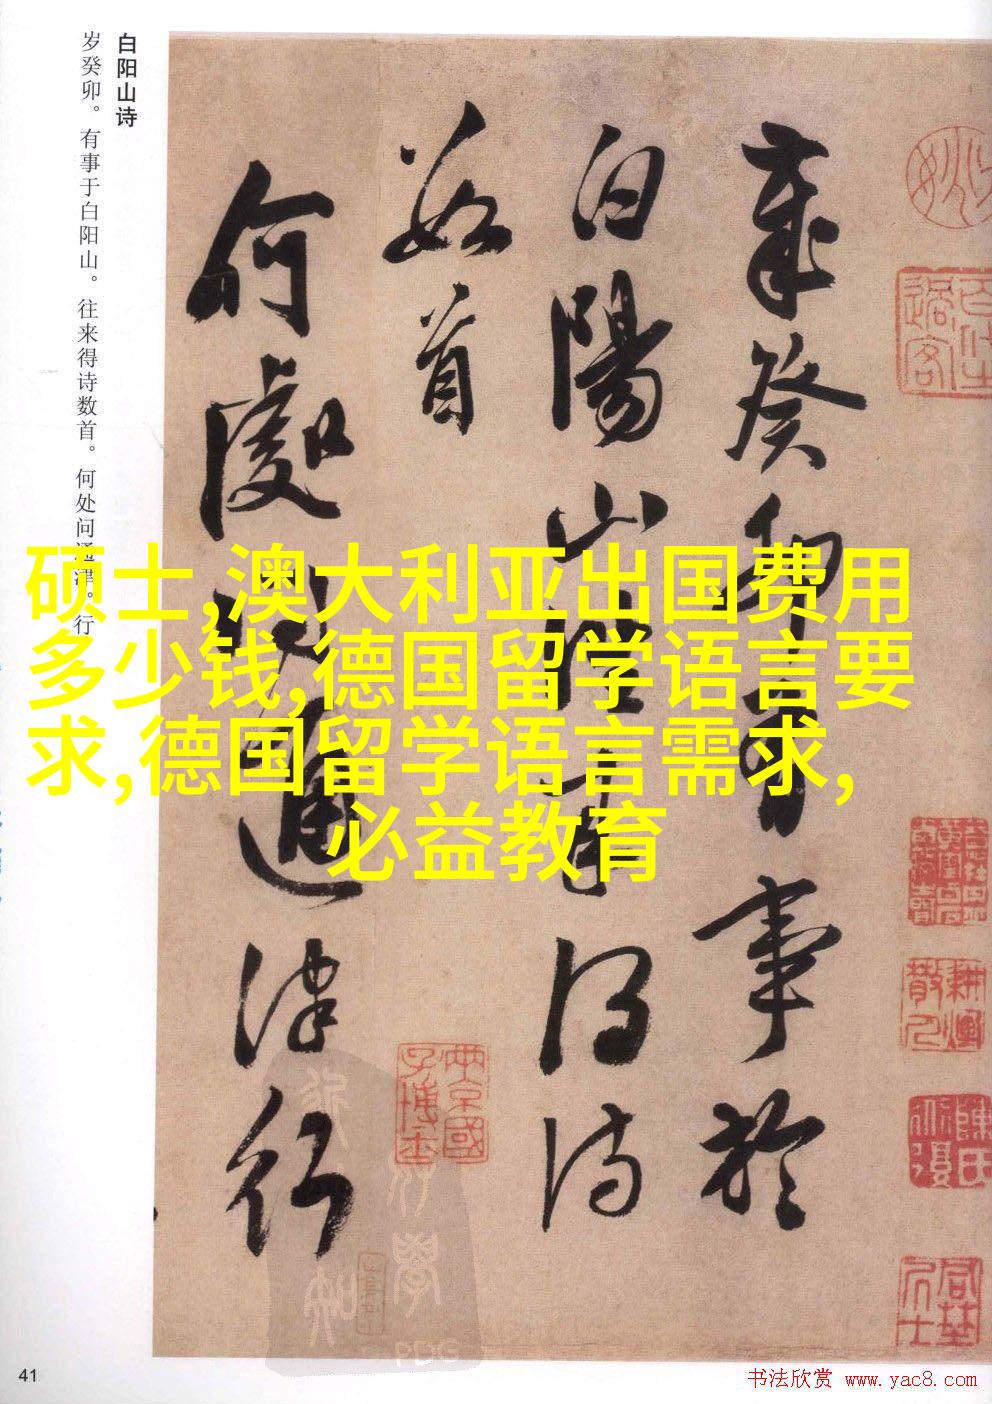 白阳山诗
岁癸卯。有事于白阳山。往来得诗数首。何处问通津。行
歲癸卯有事於
白陽山往來得詩
數首
何處問通津行
硕士,澳大利亚出国费用
多少钱,德国留学语言要
求,德国留学语言需求,
必益教育
耕煙
散人
41
书法欣赏 www.yac8.com